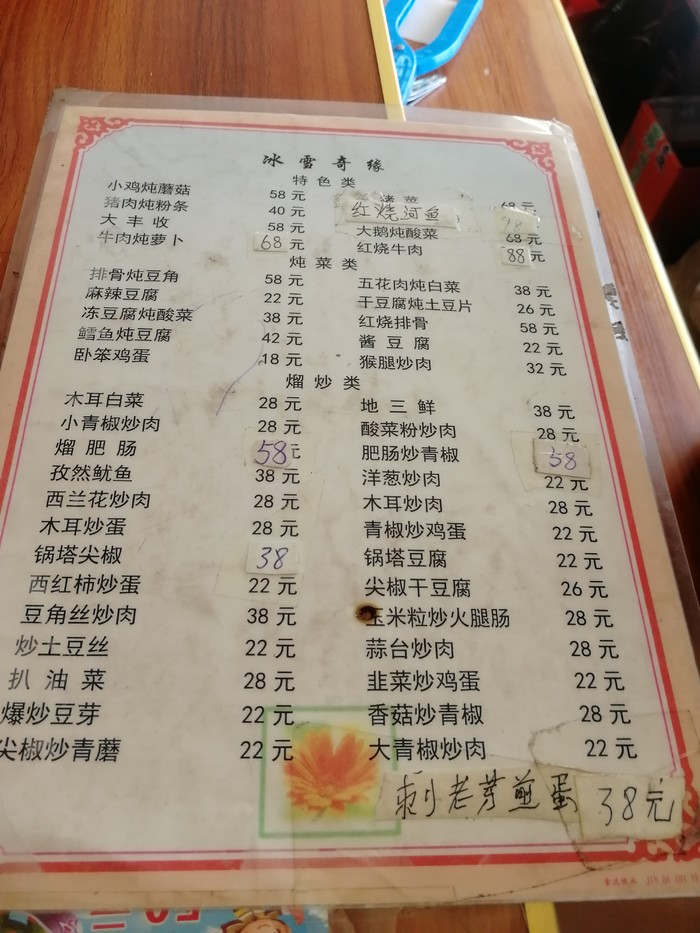 冰雪奇缘
特色类
小鸡炖蘑菇 58元 猪菜 68元
猪肉炖粉条 40元 红烧河鱼
大丰收 58元 大鹅炖酸菜 68元
牛肉炖萝卜 68元 红烧牛肉 88元
炖菜类
排骨炖豆角 58元 五花肉炖白菜 38元
麻辣豆腐 22元 干豆腐炖土豆片 26元
冻豆腐炖酸菜 38元 红烧排骨 58元
鳕鱼炖豆腐 42元 酱豆腐 22元
卧笨鸡蛋 18元 猴腿炒肉 32元
熘炒类
木耳白菜 28元 地三鲜 38元
小青椒炒肉 28元 酸菜粉炒肉 28元
熘肥肠 58元 肥肠炒青椒 58
孜然鱿鱼 38元 洋葱炒肉 22元
西兰花炒肉 28元 木耳炒肉 28元
木耳炒蛋 28元 青椒炒鸡蛋 22元
锅塔尖椒 38 锅塔豆腐 22元
西红柿炒蛋 22元 尖椒干豆腐 26元
豆角丝炒肉 38元 玉米粒炒火腿肠 28元
炒土豆丝 22元 蒜台炒肉 28元
扒油菜 28元 韭菜炒鸡蛋 22元
爆炒豆芽 22元 香菇炒青椒 28元
尖椒炒青蘑 22元 大青椒炒肉 22元
刺老芽煎蛋 38元